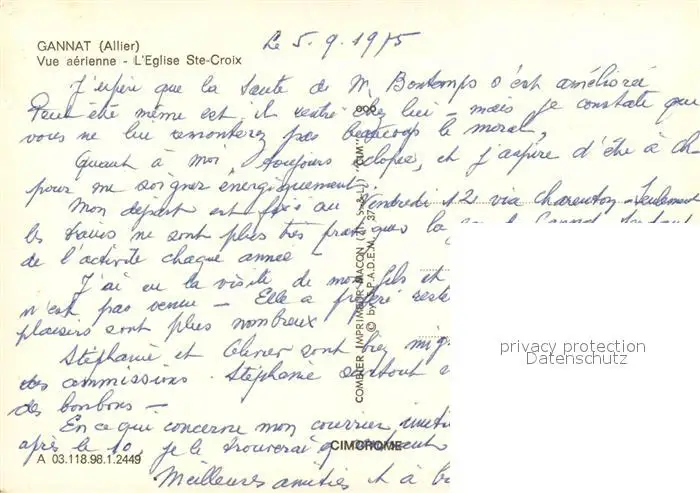 GANNAT (Allier)
Vue aérienne - L'Eglise Ste-Croix
Le 5.9.1975
J'espère que la santé de M. Bontemps s'est améliorée
Peut être même est il rentré chez lui - mais je constate que
vous ne lui remonterez pas beaucoup le moral,
Quant à moi, toujours éclopée, et j'aspire d'être à Ch
pour me soigner énergiquement.
Mon départ est fixé au Vendredi 12 via Charenton - Seulement
les trains ne sont plus très pratiques la Gannat
de l'activité chaque année -
J'ai eu la visite de mon fils et
n'est pas venue - Elle a préféré reste
plaisirs sont plus nombreux
Stéphanie et Olivier sont bien mign
des commissions. Stéphanie surtout
des bonbons -
En ce qui concerne mon courrier, inuti
après le 10, je le trouverai
Meilleures amitiés et à b
COMBIER IMPRIMEUR MACON (71 - S.-&-L.) "CIM"
© by S.P.A.D.E.M. 37
CIMCROME
A 03.118.98.1.2449
privacy protection
Datenschutz